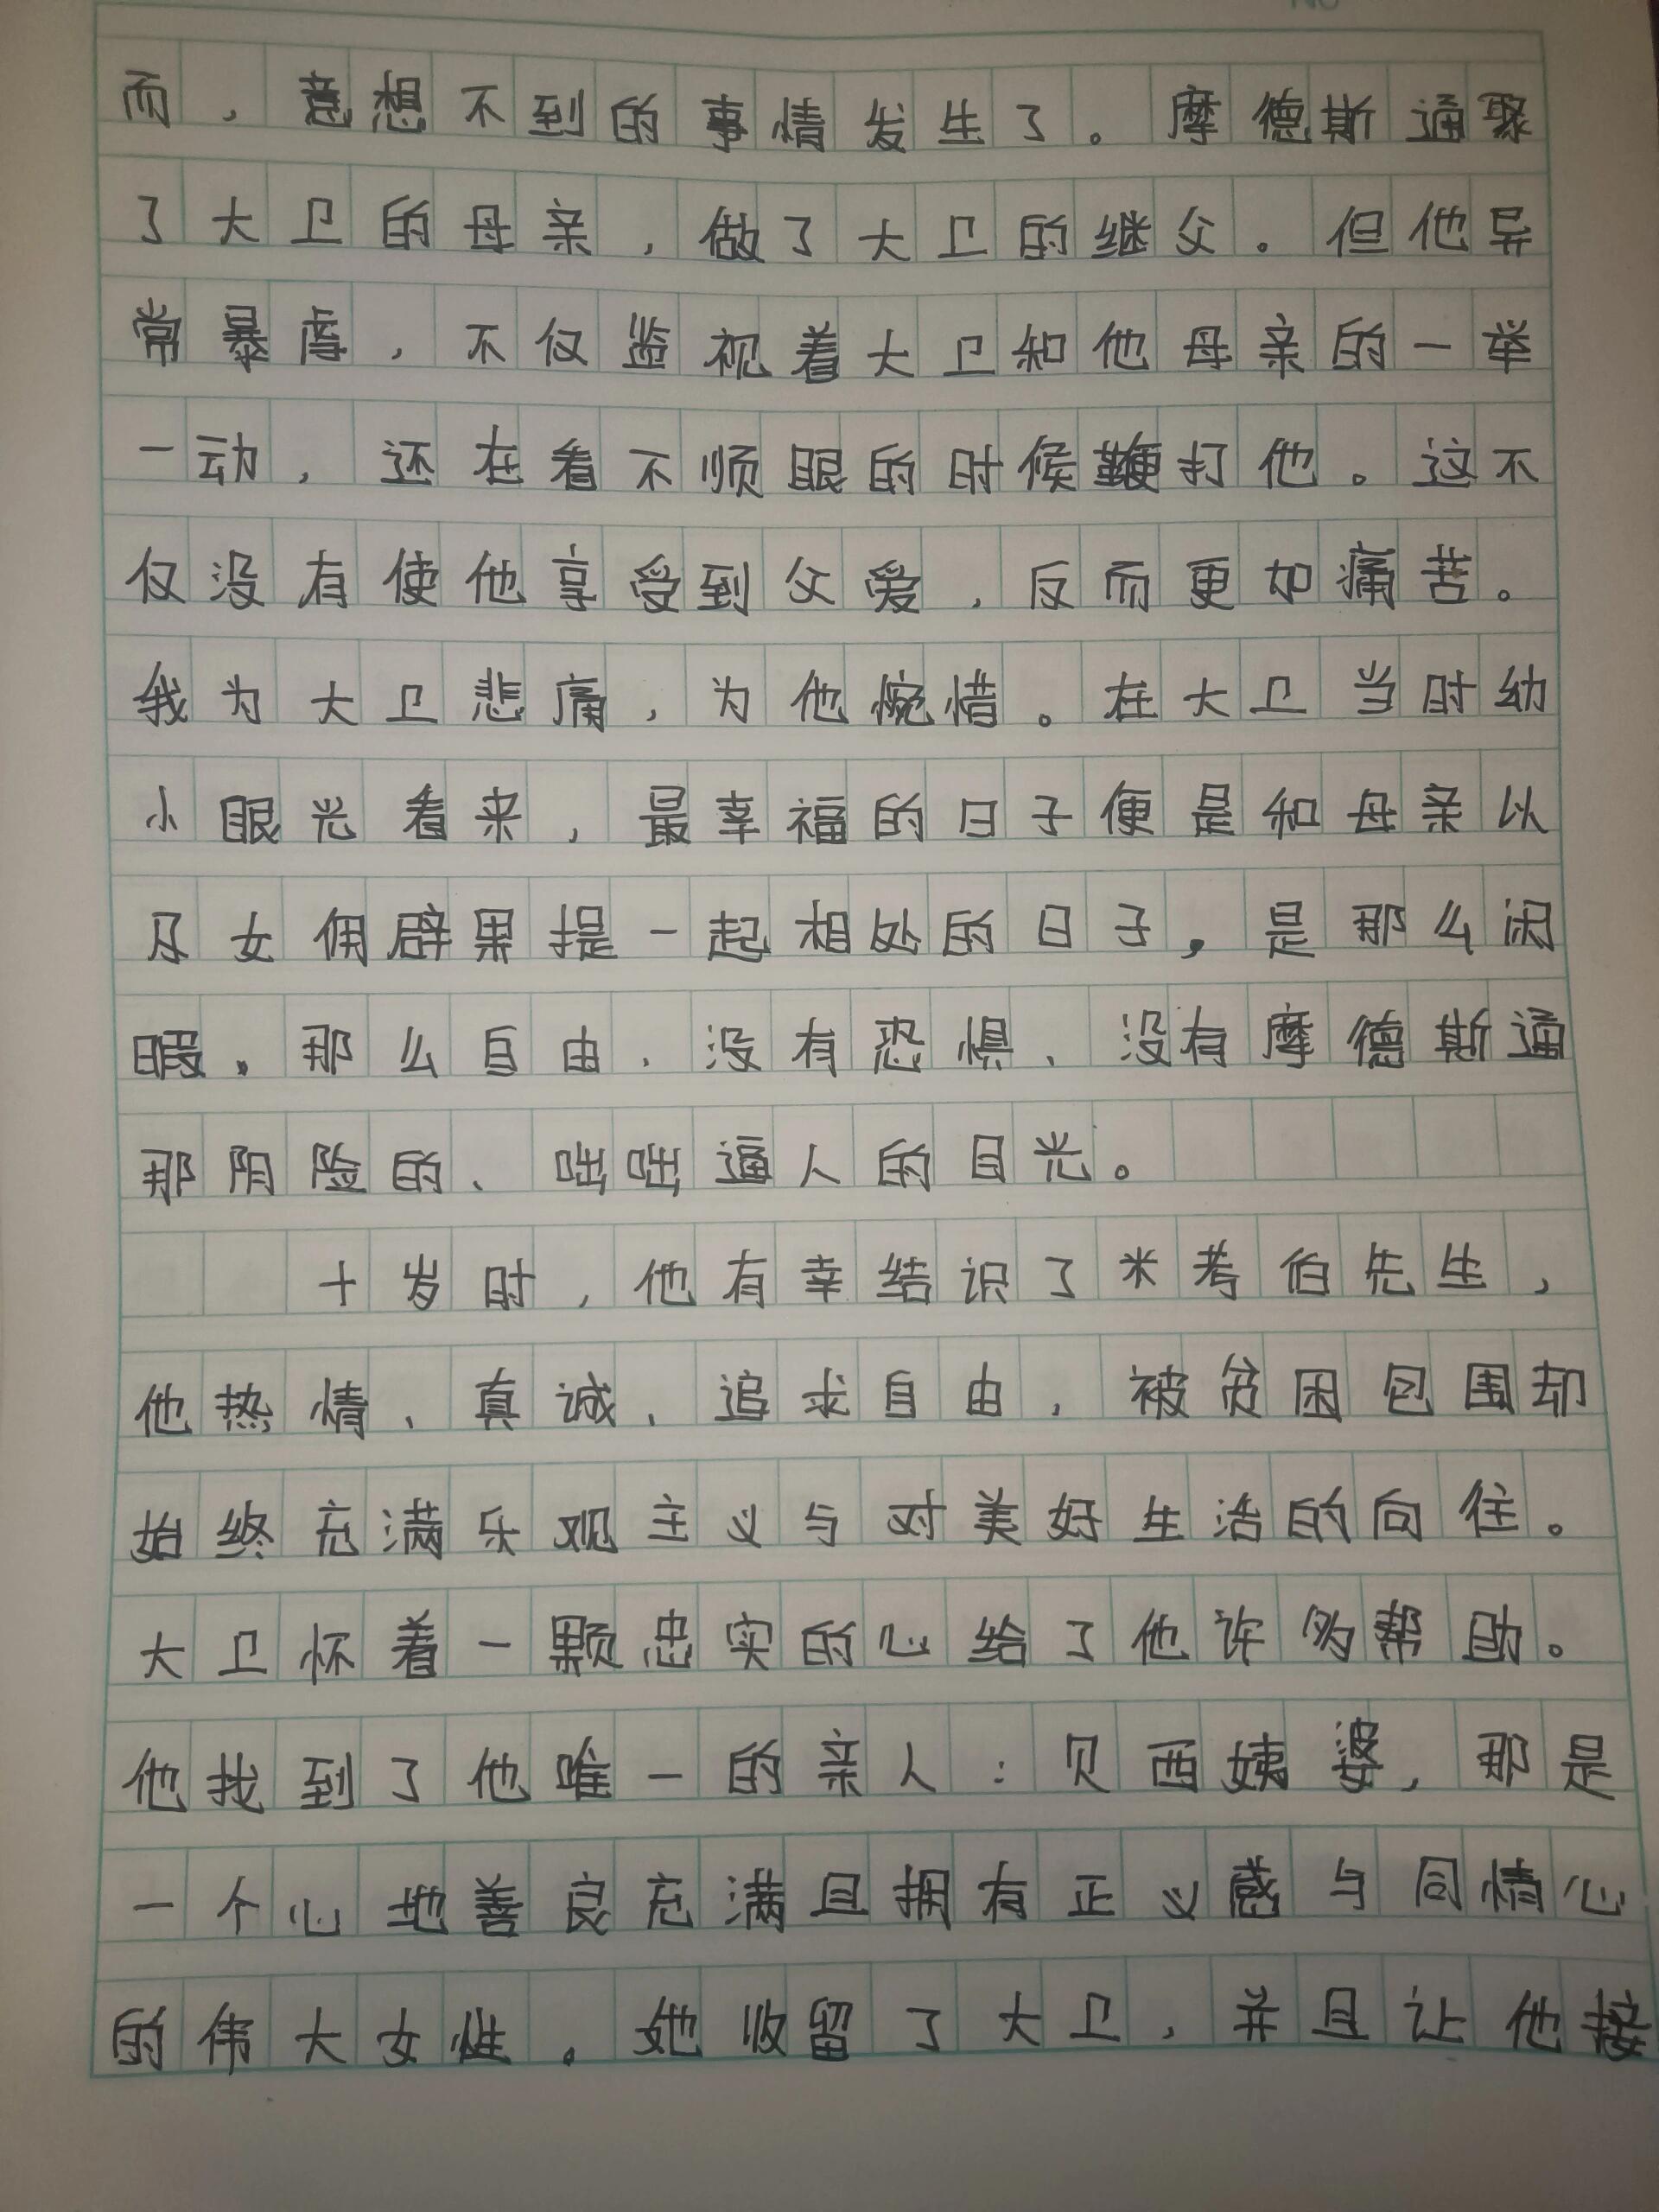 而，意想不到的事情发生了。摩德斯通聚
了大卫的母亲，做了大卫的继父。但他异
常暴虐，不仅监视着大卫和他母亲的一举
一动，还在看不顺眼的时候鞭打他。这不
仅没有使他享受到父爱，反而更加痛苦。
我为大卫悲痛，为他惋惜。在大卫当时幼
小眼光看来，最幸福的日子便是和母亲以
及女佣辟果提一起相处的日子，是那么闲
暇，那么自由，没有恐惧、没有摩德斯通
那阴险的、咄咄逼人的目光。
十岁时，他有幸结识了米考伯先生，
他热情、真诚、追求自由，被贫困包围却
始终充满乐观主义与对美好生活的向往。
大卫怀着一颗忠实的心给了他许多帮助。
他找到了他唯一的亲人：贝西姨婆，那是
一个心地善良充满且拥有正义感与同情心
的伟大女性。她收留了大卫，并且让他接